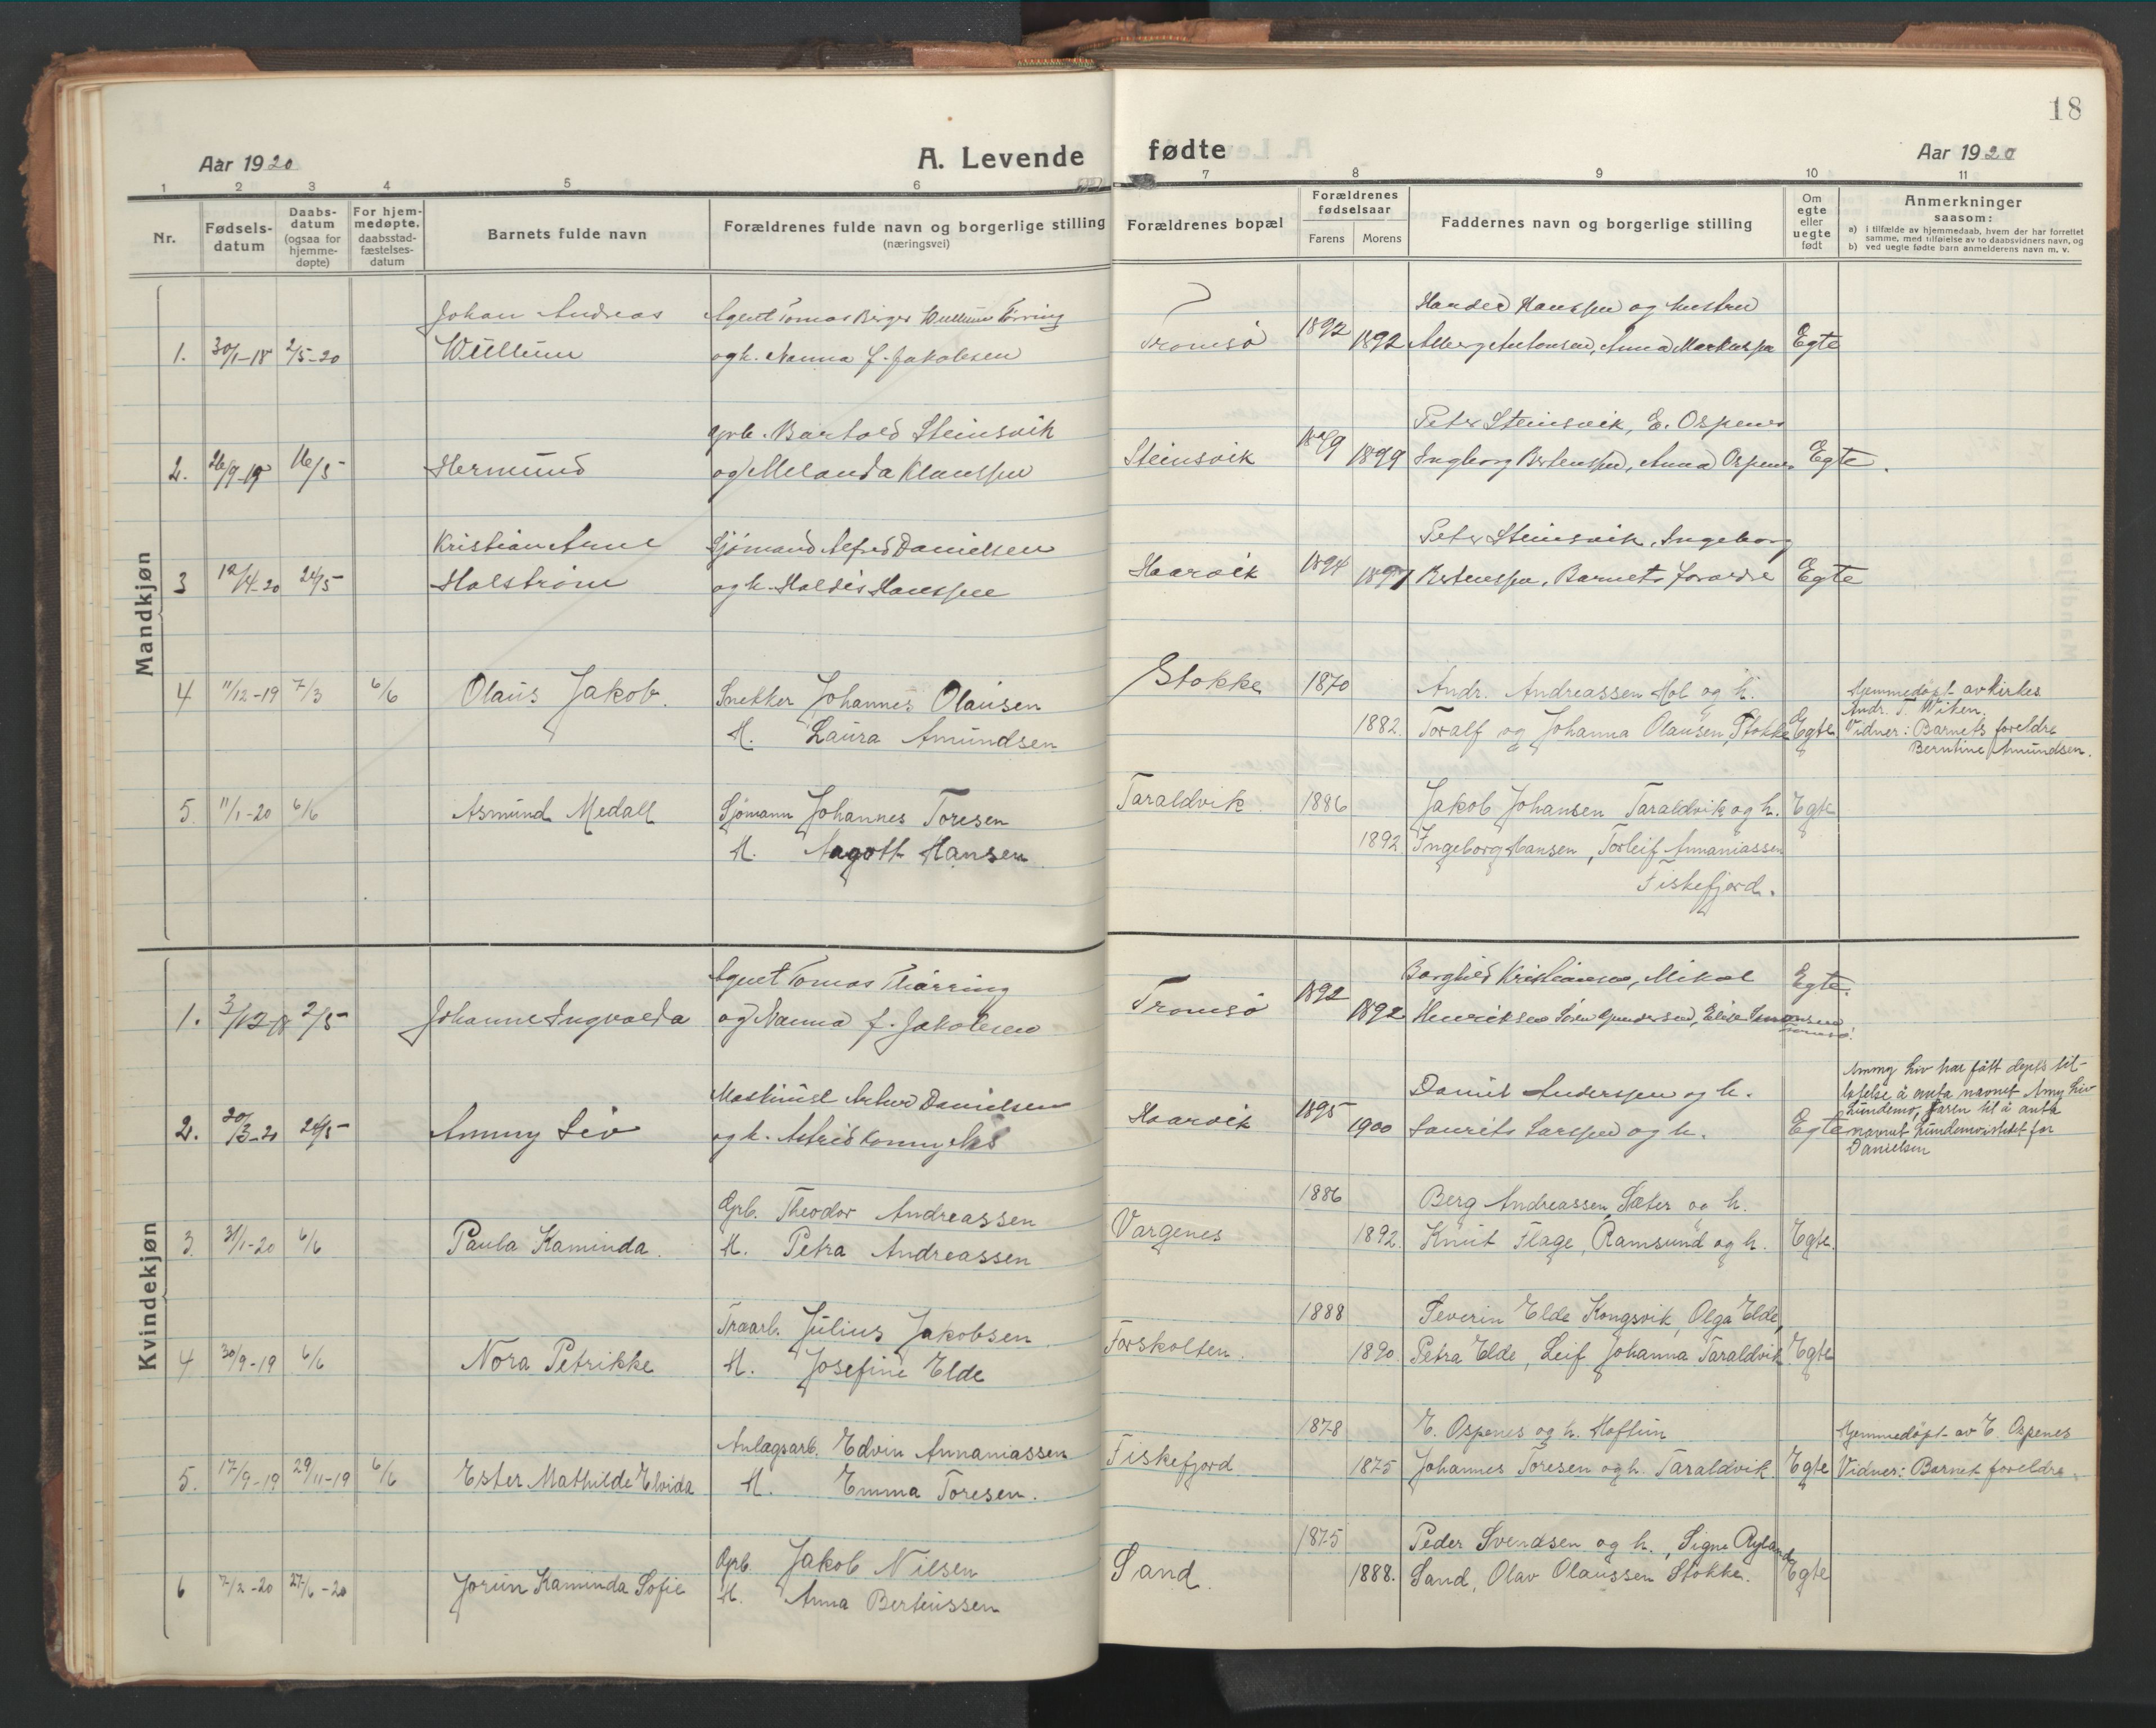 18
Aar 1920
A. Levende fødte
Aar 1920
1 2 3 4 5 6 7 8 9 10 11
Nr.
Fødsels-
datum
Daabs-
datum
(ogsaa for
hjemme-
døpte)
For hjem-
medøpte.
daabsstad-
fæstelses-
datum
Barnets fulde navn
Forældrenes fulde navn og borgerlige stilling
(næringsvei)
Forældrenes bopæl
Forældrenes
fødselsaar
Farens Morens
Faddernes navn og borgerlige stilling
Om
egte
eller
uegte
født
Anmerkninger
saasom:
a) i tilfælde av hjemmedaab, hvem der har forrettet
samme, med tilføielse av to daabsvidners navn, og
b) ved uegte fødte barn anmelderens navn m. v.
Mandkjøn
Johan Andreas Agent Tomas Birger Wullum Tørring og hustru
1. 30/1-18 2/5-20 Wullum og h. Nanna f. Jakobsen Tromsø 1892 1892 Egte
Grb. Bartold Steinsvik Peter Steinsvik, E. Ospenes
2. 26/9-19 16/5 Hermund og Melanda Klaussen Steinsvik 1899 Ingborg Bertenssen, Anna Ospenes Egte.
Kristian Arne Sjømand Alfred Danielsen Peter Steinsvik, Ingeborg
3 12/4-20 24/5 Holstrøm og h. Haldis Hanssen Haarvik 1894 1897 Bertenssen, Barnets Forældre Egte
4 11/12-19 7/3 6/6 Olaus Jakob. Snekker Johannes Olausen Stokke 1870 Andr. Andreassen Hol og h. Hjemmedøpt av kirkes
Andr. T. Wiken.
H. Laura Amundsen 1882. Toralf og Johanna Olausen, Stokke Egte Vidner: Barnets foreldre
Berntine Amundsen.
5. 11/1-20 6/6 Asmund Medall Sjømann Johannes Toresen Taraldvik 1886 Jakob Johansen Taraldvik og h. Egte
H. Aagott Hansen 1892. Ingeborg Hansen, Torleif Annaniassen
Fiskefjord.
Kvindekjøn
Agent Tomas Thørring Borghild Kristiansen, Mikal Egte.
1. 3/12-18 2/5 Johanne Ingvalda og Nanna f. Jakobsen Tromsø 1892 1892 Henriksen Søren Gundersen, Elise Simonsen
Tromsø.
Ammy Liv har fått depts til-
Maskinist Arthur Danielsen Daniel Anderssen og h. latelse å anta navnet Amy Liv
Lundemo, faren til å anta
2. 20/3-20 24/5 Ammy Liv og h. Astrid Haarvik 1895 1900 Laurits Larssen og h. Egte navnet Lundemo istedet for
Danielsen
Grb. Theodor Andreassen 1886 Berg Andreassen, Sæter og h.
3. 31/1-20 6/6 Paula Kaminda. H. Petra Andreassen Vargenes 1892. Knut Flage, Ramsund og h. Egte.
Traarb. Julius Jakobsen 1888 Severin Elde Kongsvik, Olga Elde,
4 30/9-19 6/6 Nora Petrikke H. Josefine Elde Forskolten. 1890. Petra Elde, Leif Johanna Taraldvik Egte
Anlagsarb. Edvin Annaniassen 1878 E. Ospenes og h. Hoftun Hjemmedøpt av E. Ospenes
5. 17/9-19 29/11-19 6/6 Ester Mathilde Elvida H. Emma Toresen. Fiskefjord 1875 Johannes Toresen og h. Taraldvik Egte Vidner: Barnet foreldre.
Grb. Jakob Nilsen 1875 Peder Svendsen og h., Signe Ryland
6 7/2-20 27/6-20 Jorun Kaminda Sofie H. Anna Berteussen Sand. 1888. Sand, Olav Olaussen Stokke. Egte